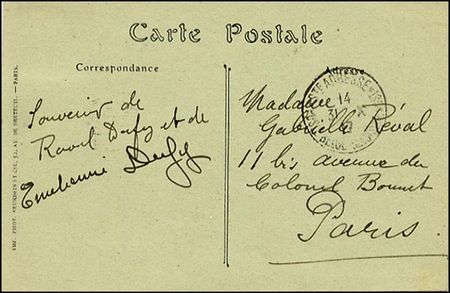 Carte Postale
Correspondance
Souvenir de
Raoul Dufy et de
Emilienne Dufy
Madame
Gabrielle Réval
11 bis avenue du
Colonel Bonnet
Paris
14